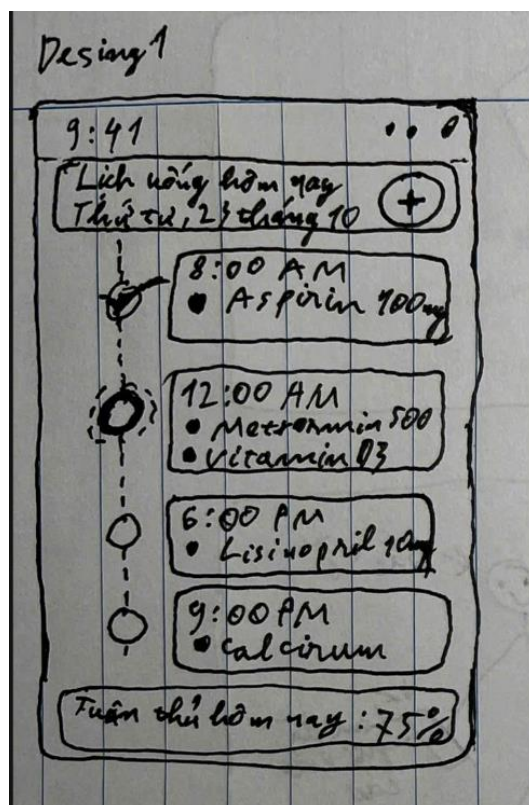 Desing 1
9:41
Lich uống hôm nay
Thứ tư, 23 tháng 10
+
8:00 AM
• Aspirin 100mg
12:00 AM
• Metformin 500
• Vitamin D3
6:00 PM
• Lisinopril 10mg
9:00 PM
• Calcirum
Tuân thủ hôm nay : 75%